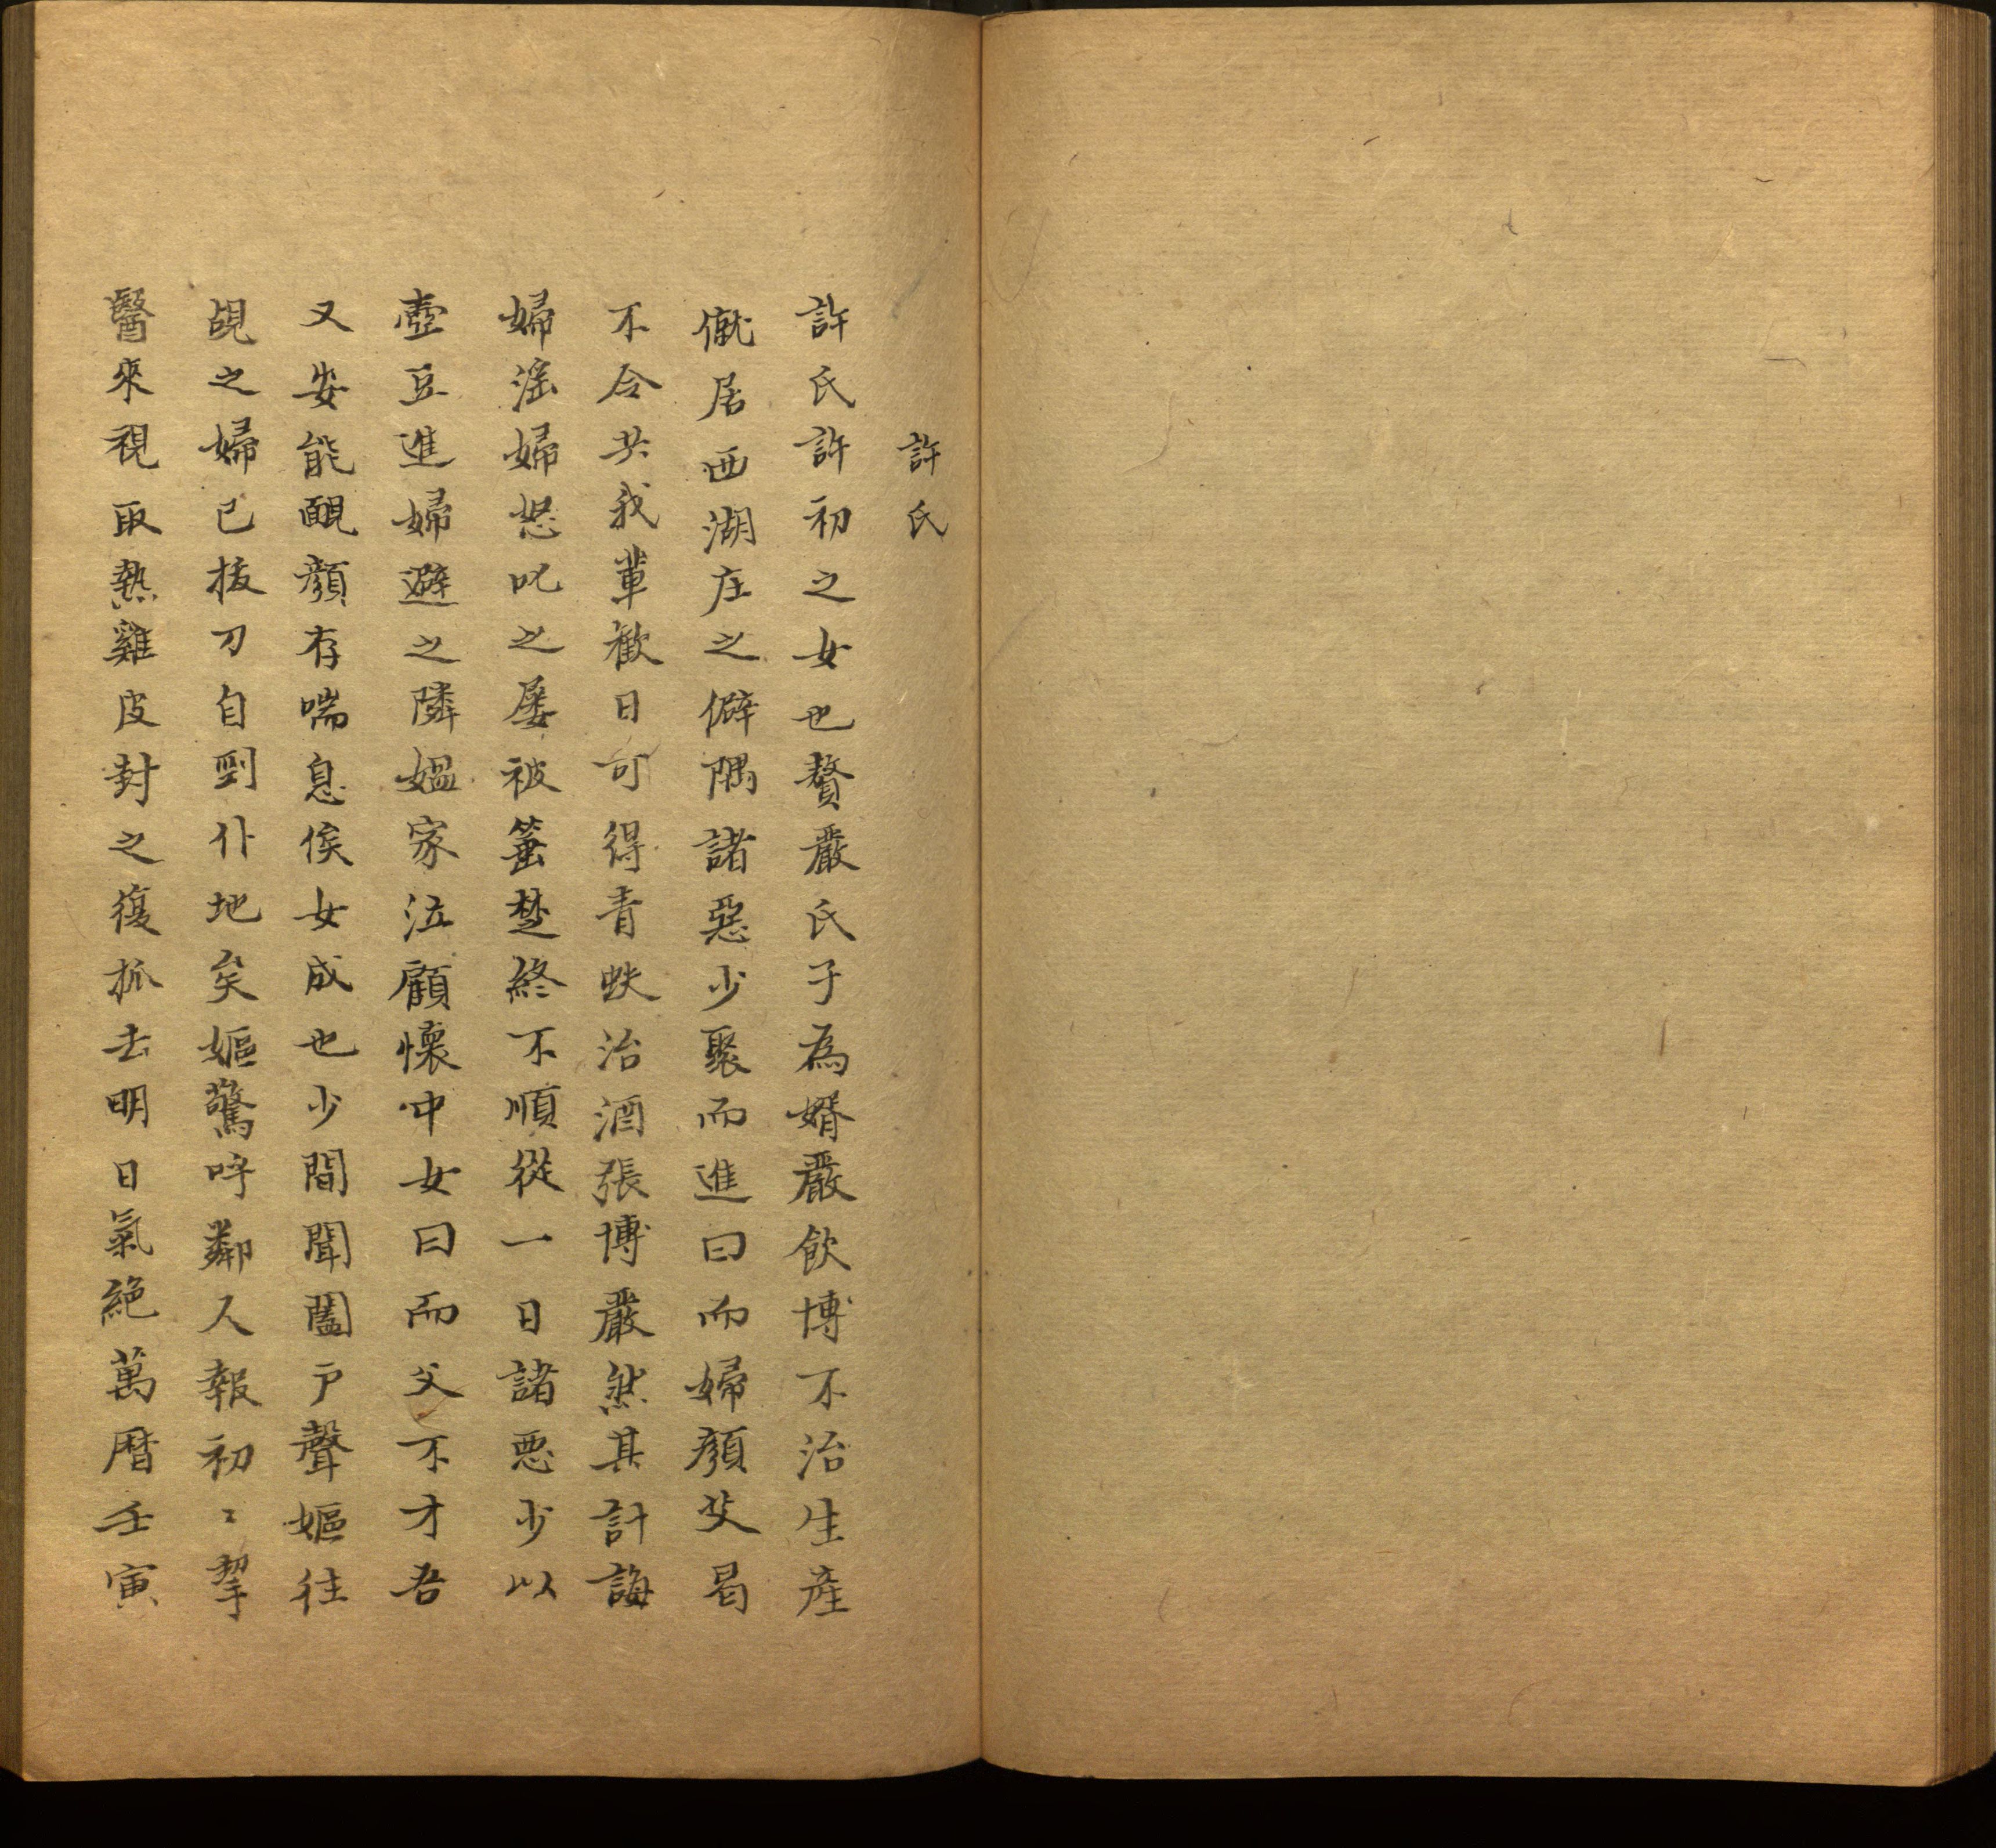 許氏
許氏許初之女也贅嚴氏子為婿嚴飲博不治生產
僦居西湖庄之僻隅諸惡少聚而進曰而婦顏艾曷
不令共我輩歡日可得青蚨治酒張博嚴然其計誨
婦滛婦怒叱之屡被箠楚終不順從一日諸悪少以
壺豆進婦避之隣媼家泣顧懷中女曰而父不才吾
又安能靦顏存喘息俟女成也少間聞闔户聲嫗往
覘之婦已拔刀自剄仆地矣嫗驚呼鄰人報初〻挈
醫來視取熱雞皮封之復抓去明日氣絶萬暦壬寅